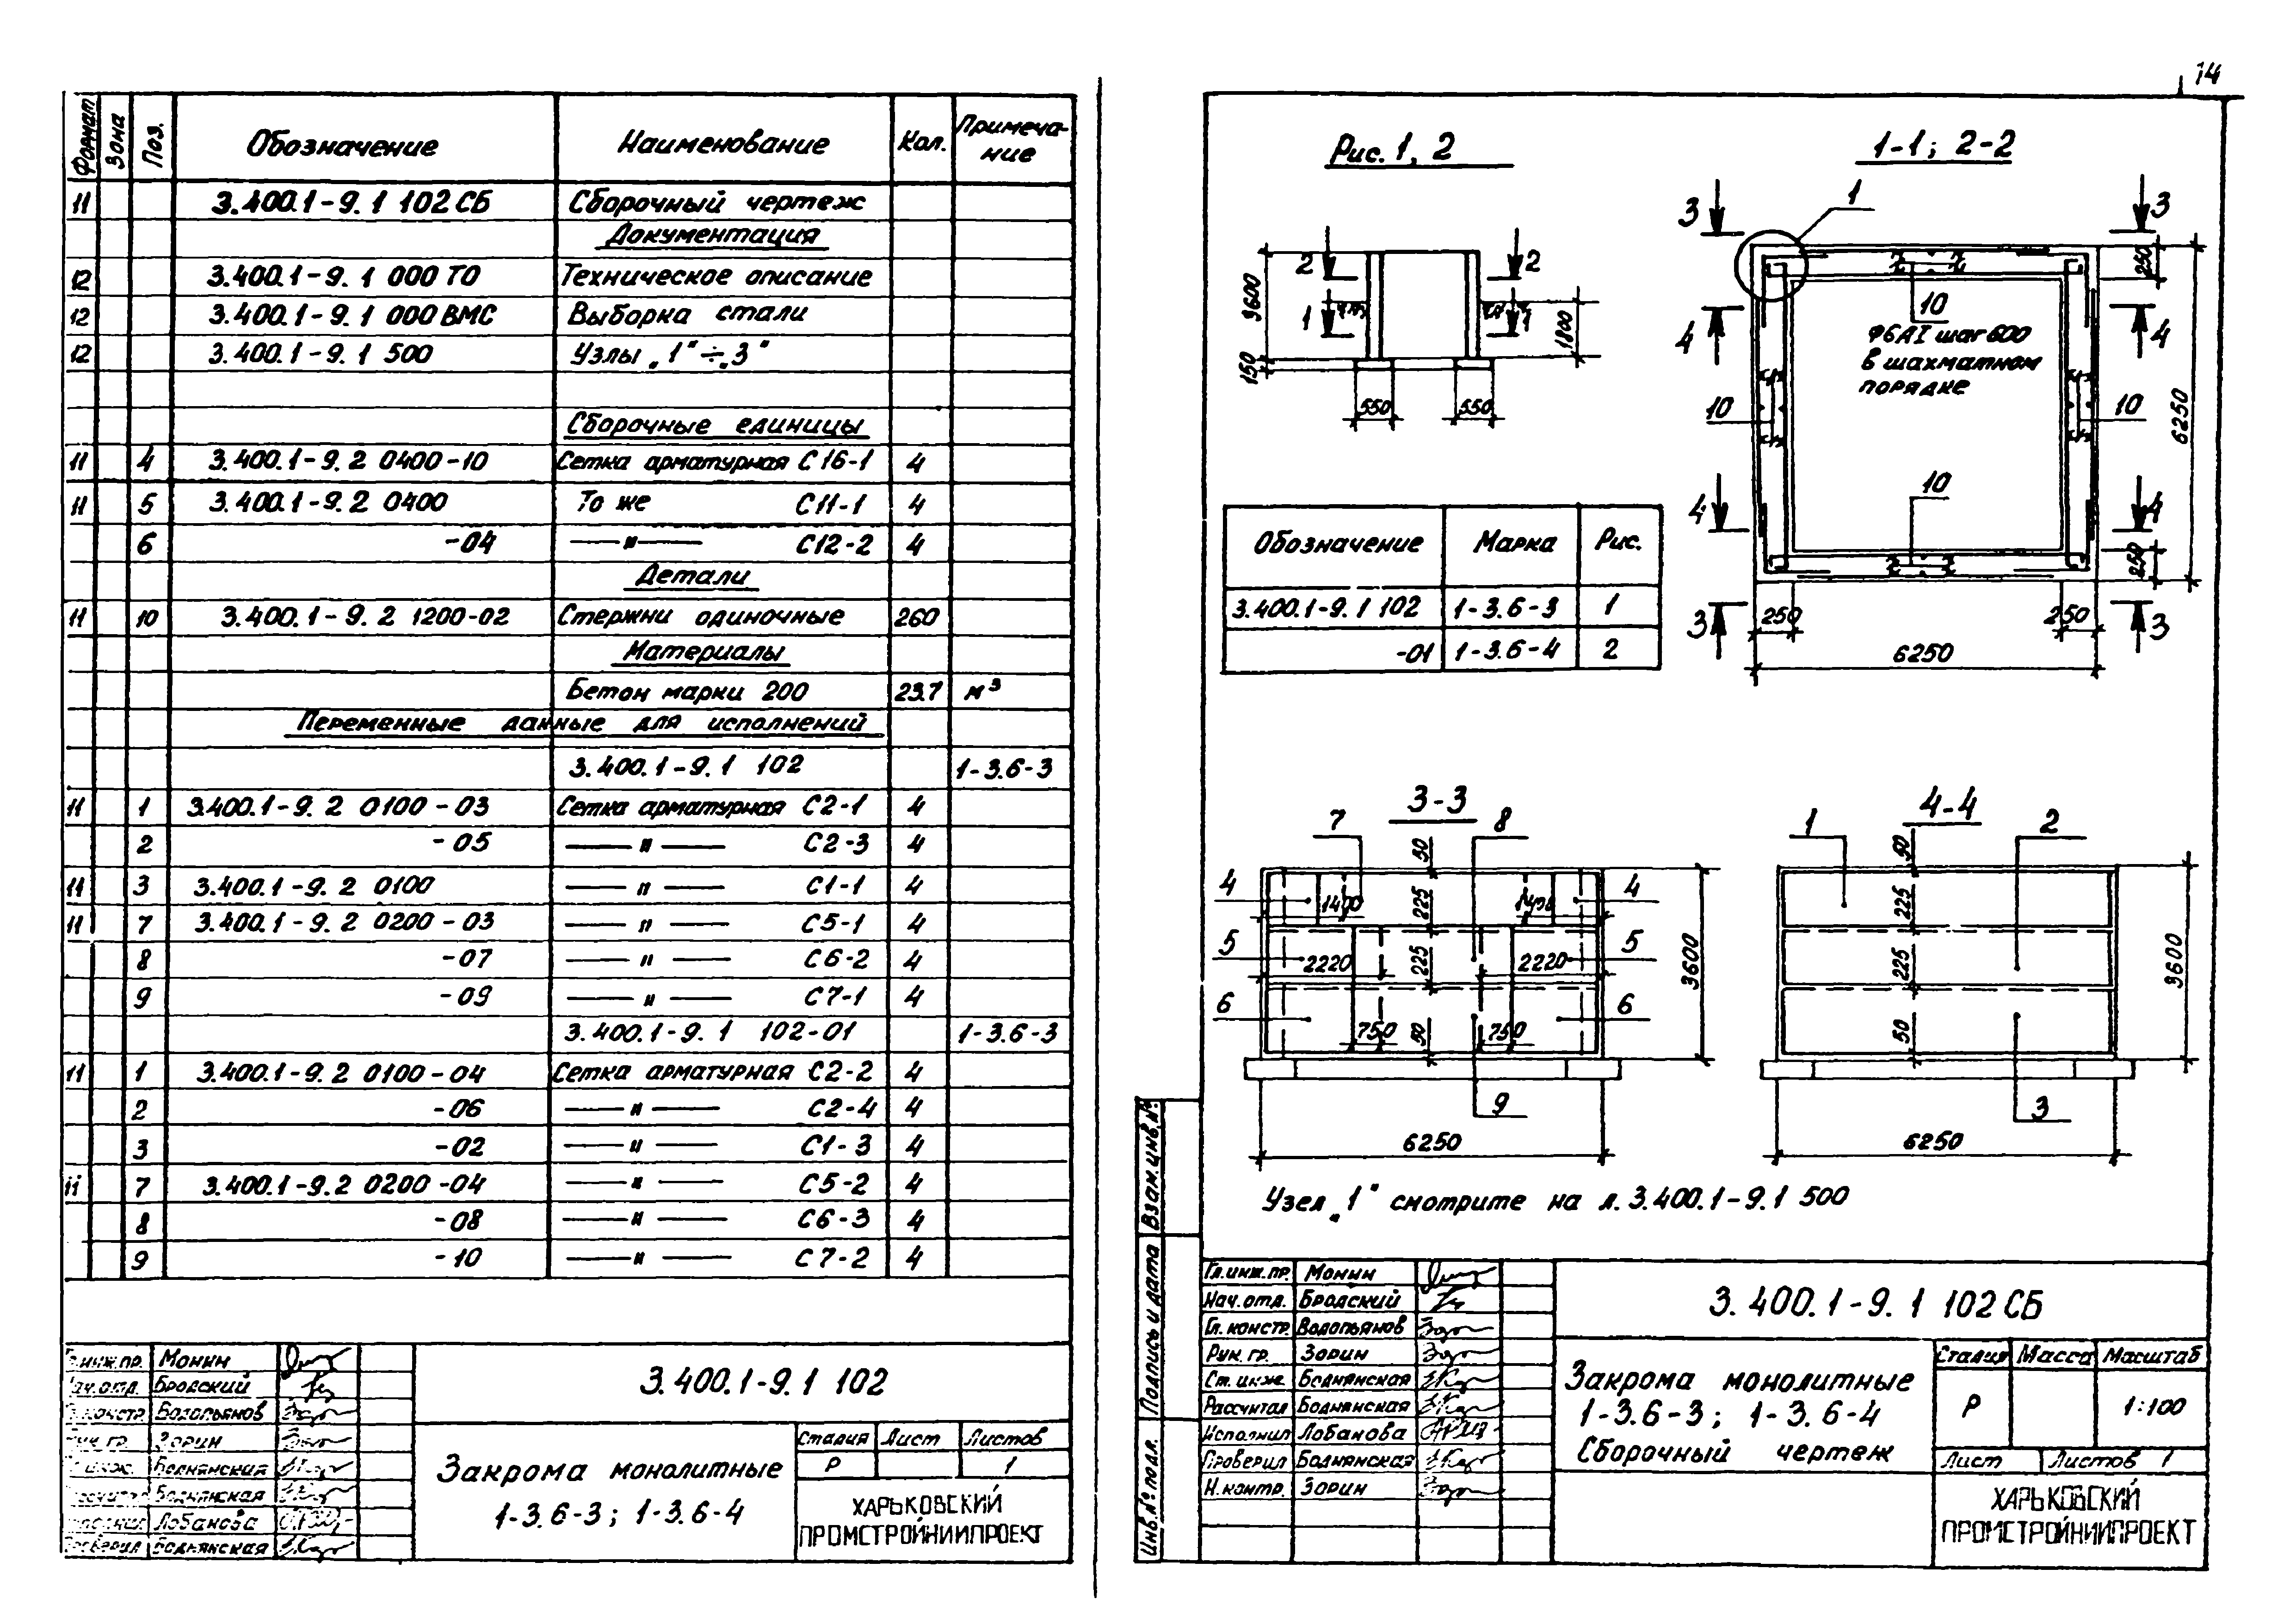 Формат Зона Поз. Обозначение Наименование Кол. Примеча-
ние
11 3.400.1-9.1 102 СБ Сборочный чертеж
Документация
12 3.400.1-9.1 000 ТО Техническое описание
12 3.400.1-9.1 000 ВМС Выборка стали
12 3.400.1-9.1 500 Узлы „1"÷„3"
Сборочные единицы
11 4 3.400.1-9.2 0400-10 Сетка арматурная С16-1 4
11 5 3.400.1-9.2 0400 То же С11-1 4
6 -04 —"— С12-2 4
Детали
11 10 3.400.1-9.2 1200-02 Стержни одиночные 260
Материалы
Бетон марки 200 23.7 м³
Переменные данные для исполнений
3.400.1-9.1 102 1-3.6-3
11 1 3.400.1-9.2 0100-03 Сетка арматурная С2-1 4
2 -05 —"— С2-3 4
11 3 3.400.1-9.2 0100 —"— С1-1 4
11 7 3.400.1-9.2 0200-03 —"— С5-1 4
8 -07 —"— С6-2 4
9 -09 —"— С7-1 4
3.400.1-9.1 102-01 1-3.6-3
11 1 3.400.1-9.2 0100-04 Сетка арматурная С2-2 4
2 -06 —"— С2-4 4
3 -02 —"— С1-3 4
11 7 3.400.1-9.2 0200-04 —"— С5-2 4
8 -08 —"— С6-3 4
9 -10 —"— С7-2 4
Монин
Бродский
Водопьянов
Зорин
Боднянская
Боднянская
Лобанова
Боднянская
3.400.1-9.1 102
Закрома монолитные
1-3.6-3; 1-3.6-4
Стадия Лист Листов
Р 1
ХАРЬКОВСКИЙ
ПРОМСТРОЙНИИПРОЕКТ
14
Рис. 1, 2
2 2
1 1
3600
150
1800
550 550
1-1; 2-2
1
3 3
4 4
250
10
Ф6АI шаг 600
в шахматном
порядке
10 10
6250
10
4 4
250
3 3
250 250
6250
Обозначение Марка Рис.
3.400.1-9.1 102 1-3.6-3 1
-01 1-3.6-4 2
3-3
7 8
50
4 4
1400 225 1400
5 5
2220 225 2220
6 6
750 50 750
3600
9
6250
4-4
1 2
50
225
225
50
3600
3
6250
Узел „1" смотрите на л. 3.400.1-9.1 500
Инв.№ подл. Подпись и дата Взам.инв.№
Гл.инж.пр. Монин
Нач.отд. Бродский
Гл.констр. Водопьянов
Рук.гр. Зорин
Ст.инж. Боднянская
Рассчитал Боднянская
Исполнил Лобанова
Проверил Боднянская
Н.контр. Зорин
3.400.1-9.1 102 СБ
Закрома монолитные
1-3.6-3; 1-3.6-4
Сборочный чертеж
Стадия Масса Масштаб
Р 1:100
Лист Листов 1
ХАРЬКОВСКИЙ
ПРОМСТРОЙНИИПРОЕКТ